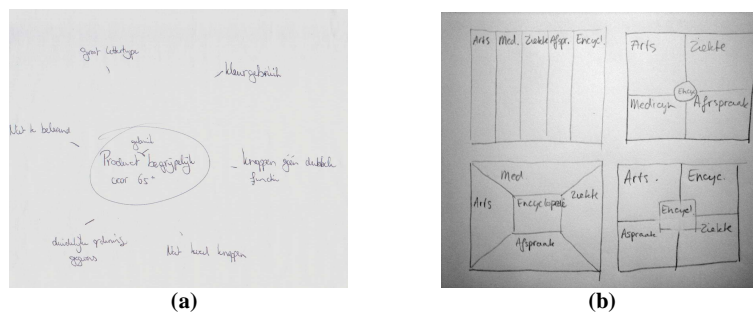 groot lettertype
kleurgebruik
Niet te
gebruik
Product begrijpelijk
voor 65+
knoppen géén dubbele
functie
duidelijk
gegevens
Niet teveel knoppen
(a)
Arts Med. Ziekte Afspr. Encycl.
Arts Ziekte
Encyc
Medicijn Afrspraak
Med
Arts Encyclopedie Ziekte
Afspraak
Arts. Encyc.
Encycl
Aspraak Ziekte
(b)